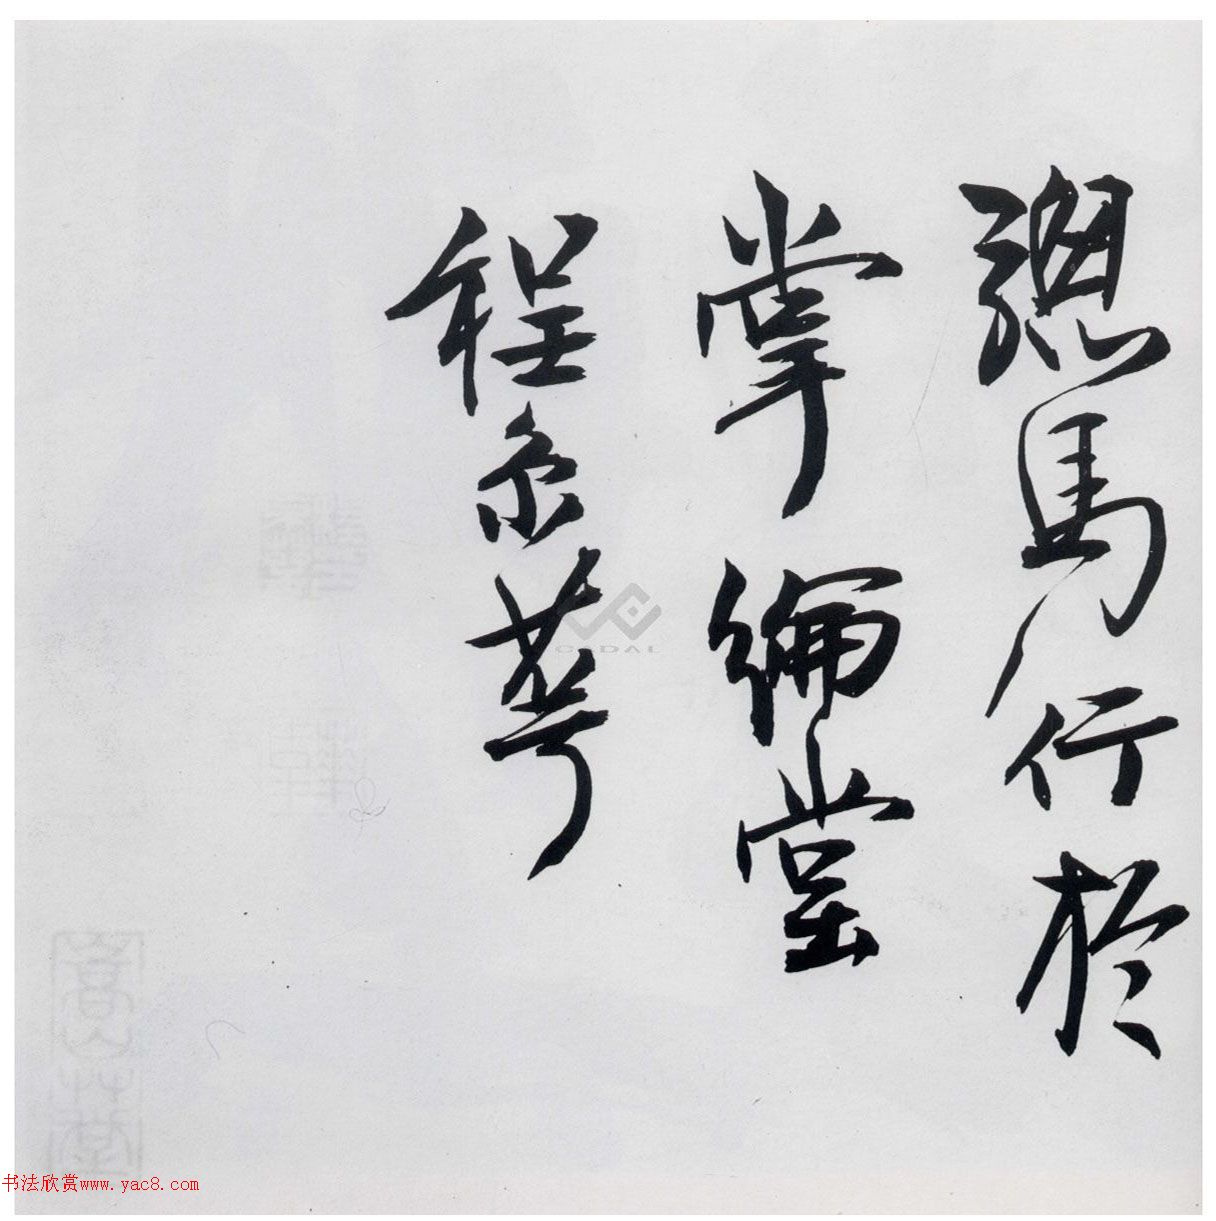 驄馬行於
掌綸堂
程京萼
CADAL
书法欣赏www.yac8.com